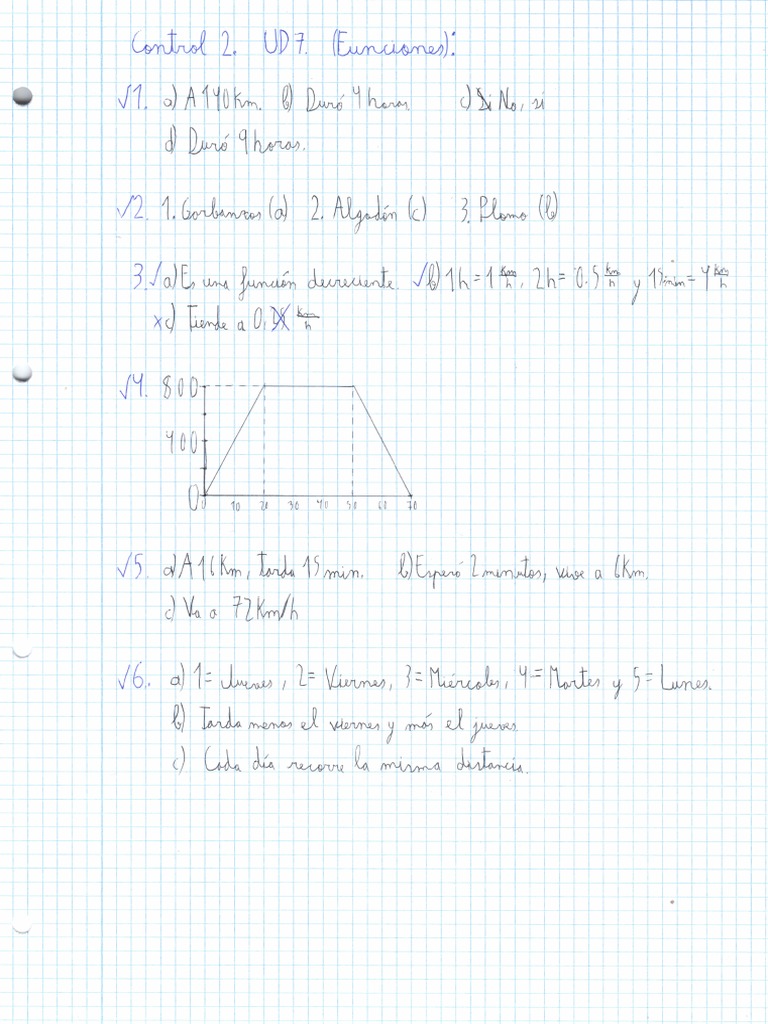 Control 2. UD7. (Funciones):
√1. a) A 140 Km. b) Duró 4 horas. c) No, si
d) Duró 9 horas.
√2. 1. Garbanzos (a) 2. Algodón (c) 3. Plomo (b)
3. √a) Es una función decreciente. √b) 1h = 1 Km/h, 2h = 0.5 Km/h y 15min = 4 Km/h
x c) Tiende a 0, Km/h
√4. 800
400
0
0 10 20 30 40 50 60 70
√5. a) A 16 Km, tarda 15 min. b) Esperó 2 minutos, vive a 6 Km.
c) Va a 72 Km/h
√6. a) 1 = Jueves, 2 = Viernes, 3 = Miércoles, 4 = Martes y 5 = Lunes.
b) Tarda menos el viernes y más el jueves.
c) Cada día recorre la misma distancia.